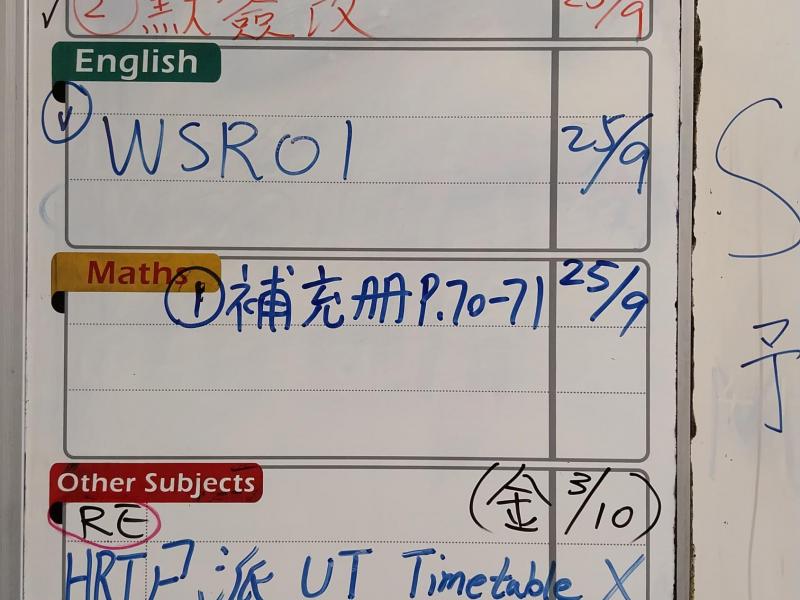 ② 默簽改 25/9
English
✓ WSR01 25/9
Maths
① 補充册 P.70-71 25/9
Other Subjects
RE (金 3/10)
HRT已派 UT Timetable X
S
予